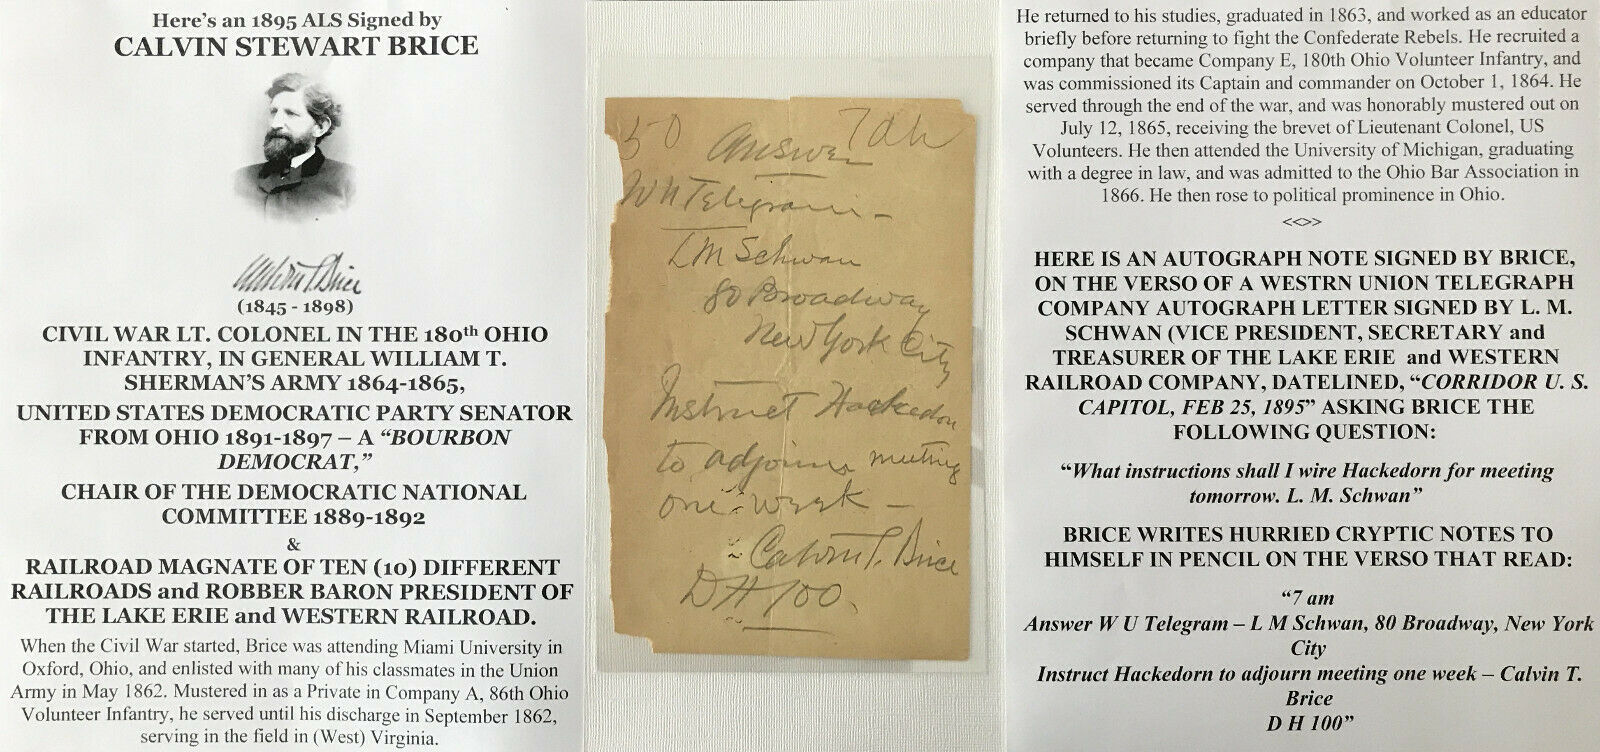 Here's an 1895 ALS Signed by
CALVIN STEWART BRICE
Calvin S. Brice
(1845 - 1898)
CIVIL WAR LT. COLONEL IN THE 180th OHIO
INFANTRY, IN GENERAL WILLIAM T.
SHERMAN'S ARMY 1864-1865,
UNITED STATES DEMOCRATIC PARTY SENATOR
FROM OHIO 1891-1897 – A “BOURBON
DEMOCRAT,”
CHAIR OF THE DEMOCRATIC NATIONAL
COMMITTEE 1889-1892
&
RAILROAD MAGNATE OF TEN (10) DIFFERENT
RAILROADS and ROBBER BARON PRESIDENT OF
THE LAKE ERIE and WESTERN RAILROAD.
When the Civil War started, Brice was attending Miami University in
Oxford, Ohio, and enlisted with many of his classmates in the Union
Army in May 1862. Mustered in as a Private in Company A, 86th Ohio
Volunteer Infantry, he served until his discharge in September 1862,
serving in the field in (West) Virginia.
50
Answer
W U Telegram –
L M Schwan
80 Broadway
New York City
Instruct Hackedorn
to adjourn meeting
one week –
Calvin S. Brice
D H 100.
He returned to his studies, graduated in 1863, and worked as an educator
briefly before returning to fight the Confederate Rebels. He recruited a
company that became Company E, 180th Ohio Volunteer Infantry, and
was commissioned its Captain and commander on October 1, 1864. He
served through the end of the war, and was honorably mustered out on
July 12, 1865, receiving the brevet of Lieutenant Colonel, US
Volunteers. He then attended the University of Michigan, graduating
with a degree in law, and was admitted to the Ohio Bar Association in
1866. He then rose to political prominence in Ohio.
<<>>
HERE IS AN AUTOGRAPH NOTE SIGNED BY BRICE,
ON THE VERSO OF A WESTRN UNION TELEGRAPH
COMPANY AUTOGRAPH LETTER SIGNED BY L. M.
SCHWAN (VICE PRESIDENT, SECRETARY and
TREASURER OF THE LAKE ERIE and WESTERN
RAILROAD COMPANY, DATELINED, “CORRIDOR U. S.
CAPITOL, FEB 25, 1895” ASKING BRICE THE
FOLLOWING QUESTION:
“What instructions shall I wire Hackedorn for meeting
tomorrow. L. M. Schwan”
BRICE WRITES HURRIED CRYPTIC NOTES TO
HIMSELF IN PENCIL ON THE VERSO THAT READ:
“7 am
Answer W U Telegram – L M Schwan, 80 Broadway, New York
City
Instruct Hackedorn to adjourn meeting one week – Calvin T.
Brice
D H 100”